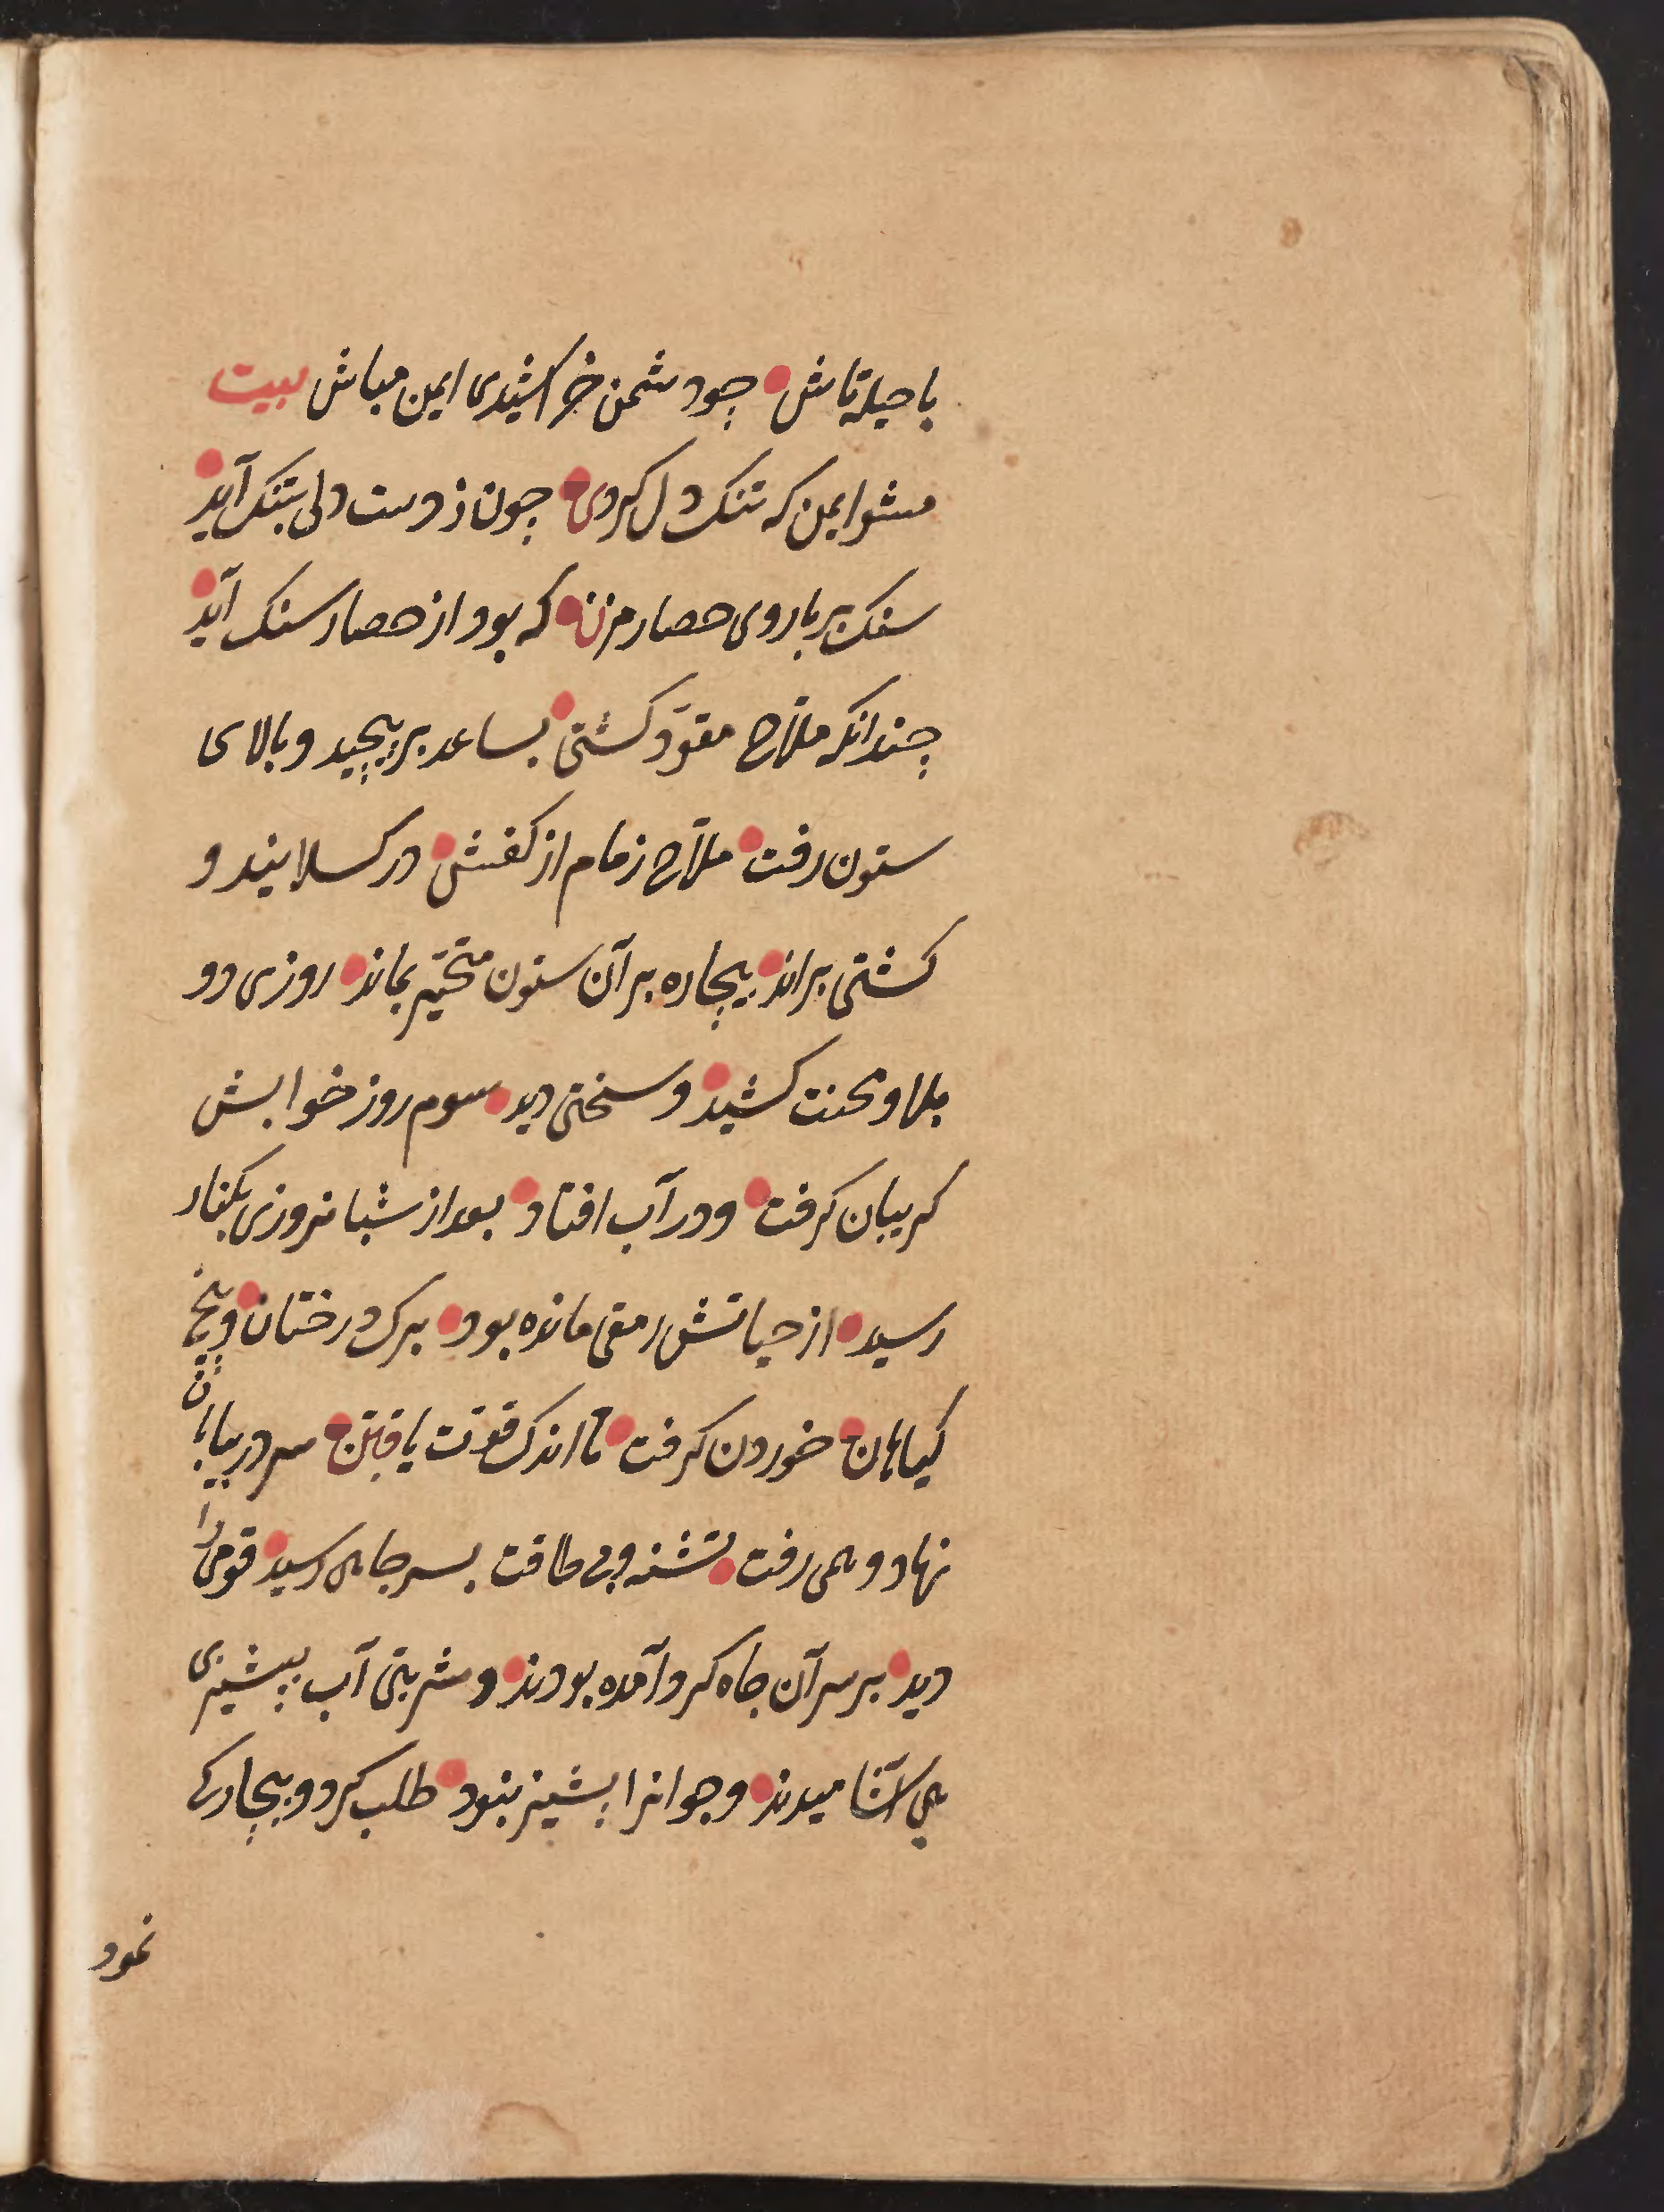 با حیله تاش چو دشمن خراشیدی ایمن مباش بیت
مشو ایمن که تنک دل کردی چون ز دست دلی بتنک آید
سنک بر باروی حصار مزن که بود از حصار سنک آید
چندانکه ملاّح مقوّد کشتی بساعد بر پیچید و بالای
ستون رفت ملاّح زمام از کفش در کسلانید و
کشتی براند بیچاره بر آن ستون متحیّر بماند روزی دو
بلا و محنت کشید و سختی دید سوم روز خوابش
کریبان کرفت و در آب افتاد بعد از شبانروزی بکنار
رسید از حیاتش رمقی مانده بود برک درختان و بیخ
کیاهان خوردن کرفت تا اندک قوّت یافت سر در بیابان
نهاد و همی رفت تشنه و بی طاقت بسر چاهی رسید قومی را
دید بر سر آن چاه کرد آمده بودند و شربتی آب بپشیزی
می آشامیدند و جوانرا پشیز نبود طلب کرد و بیچارکی
نمود